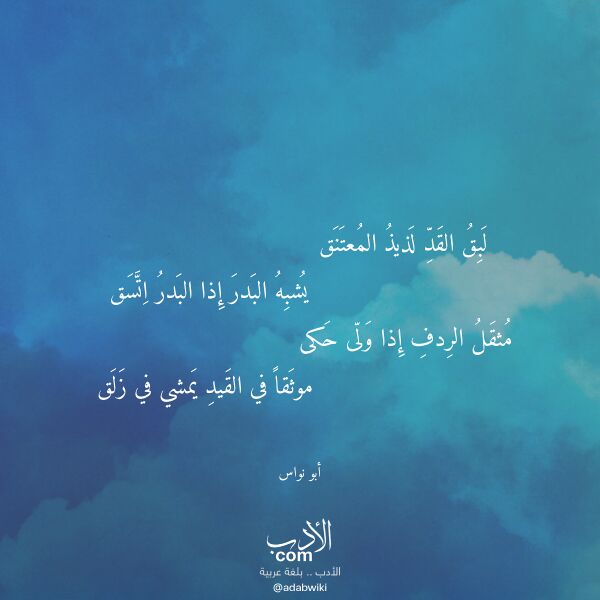 لَبِقُ القَدِّ لَذيذُ المُعتَنَق
يُشبِهُ البَدرَ إِذا البَدرُ اِتَّسَق
مُثقَلُ الرِدفِ إِذا وَلّى حَكى
موثَقاً في القَيدِ يَمشي في زَلَق
أبو نواس
الأدب
com
الأدب .. بلغة عربية
@adabwiki